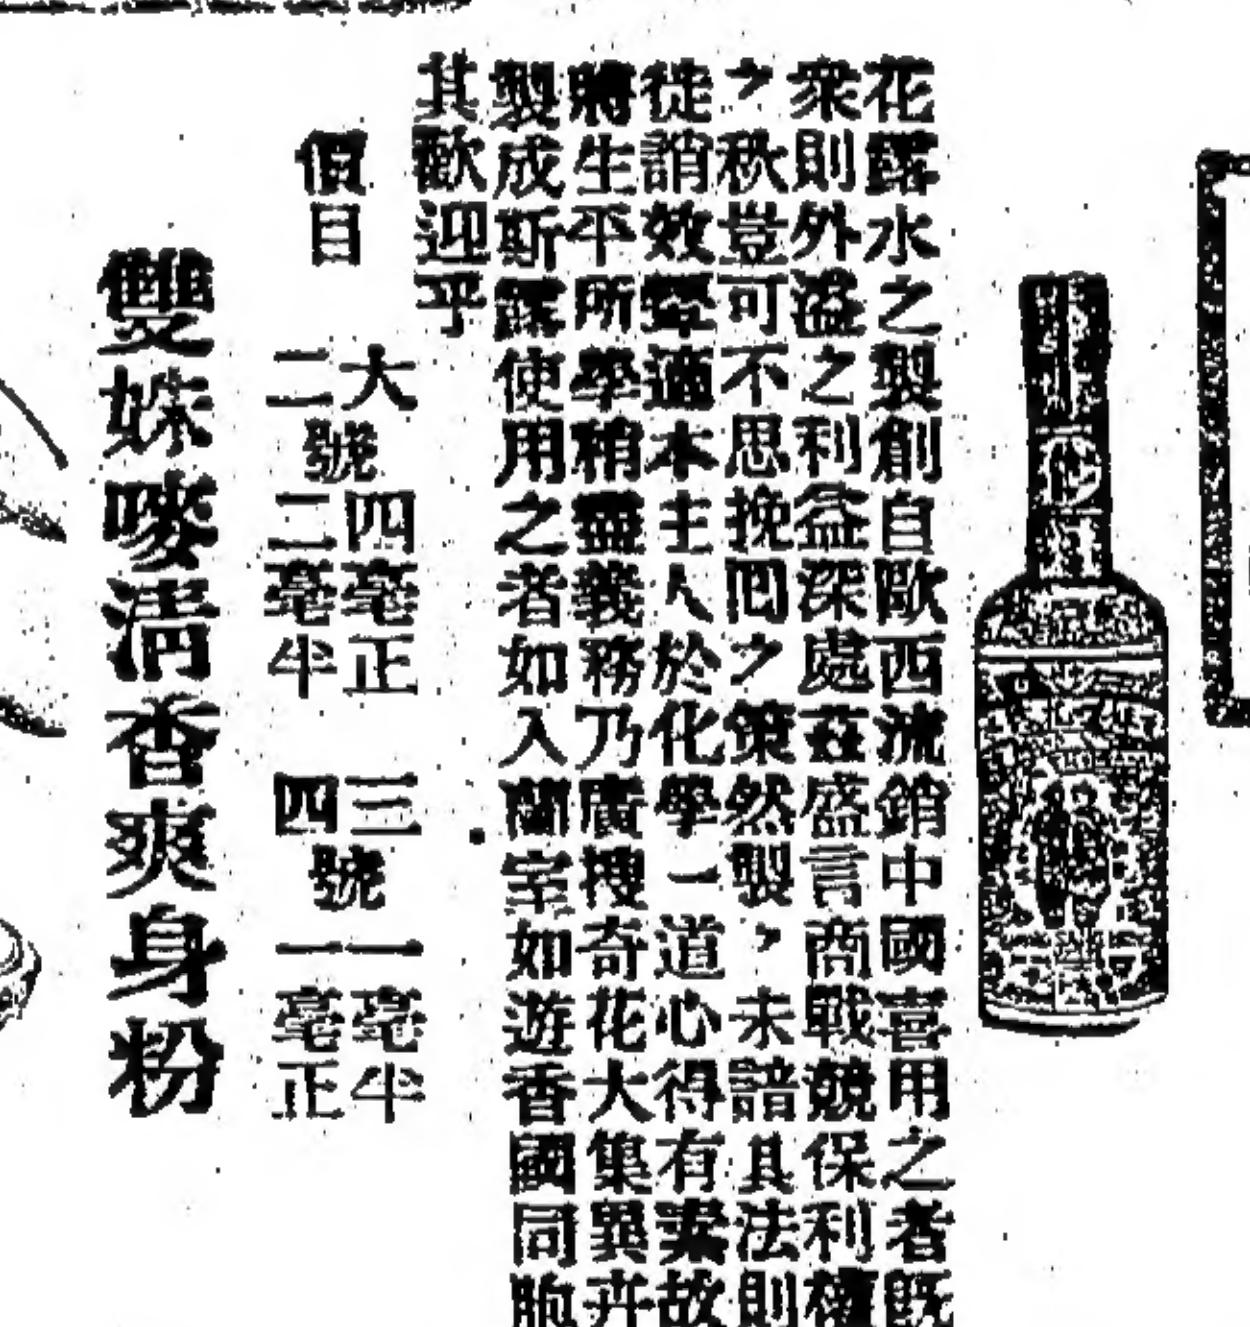 花露水之製創自歐西流銷中國喜用之者既
衆則外溢之利益深處茲盛言商戰競保利權
之秋豈可不思挽囘之策然製之未諳其法則
徒誚效顰適本主人於化學一道心得有素故
將生平所學稍盡義務乃廣搜奇花大集異卉
製成斯露使用之者如入蘭室如遊香國同胞
其歡迎乎
價目
大號四毫正 三號一毫半
二號二毫半 四號一毫正
雙妹嘜清香爽身粉